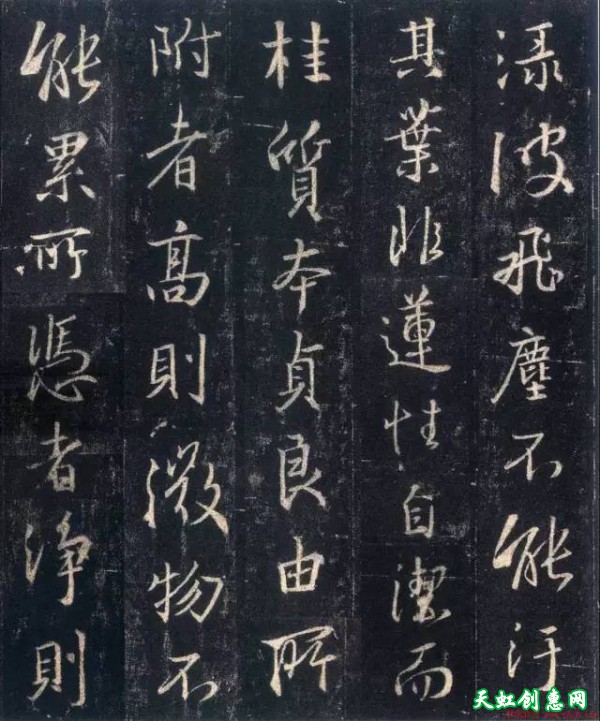 渌波飛塵不能汙
其葉非蓮性自潔而
桂質本貞良由所
附者高則微物不
能累所憑者淨則
天虹创意网